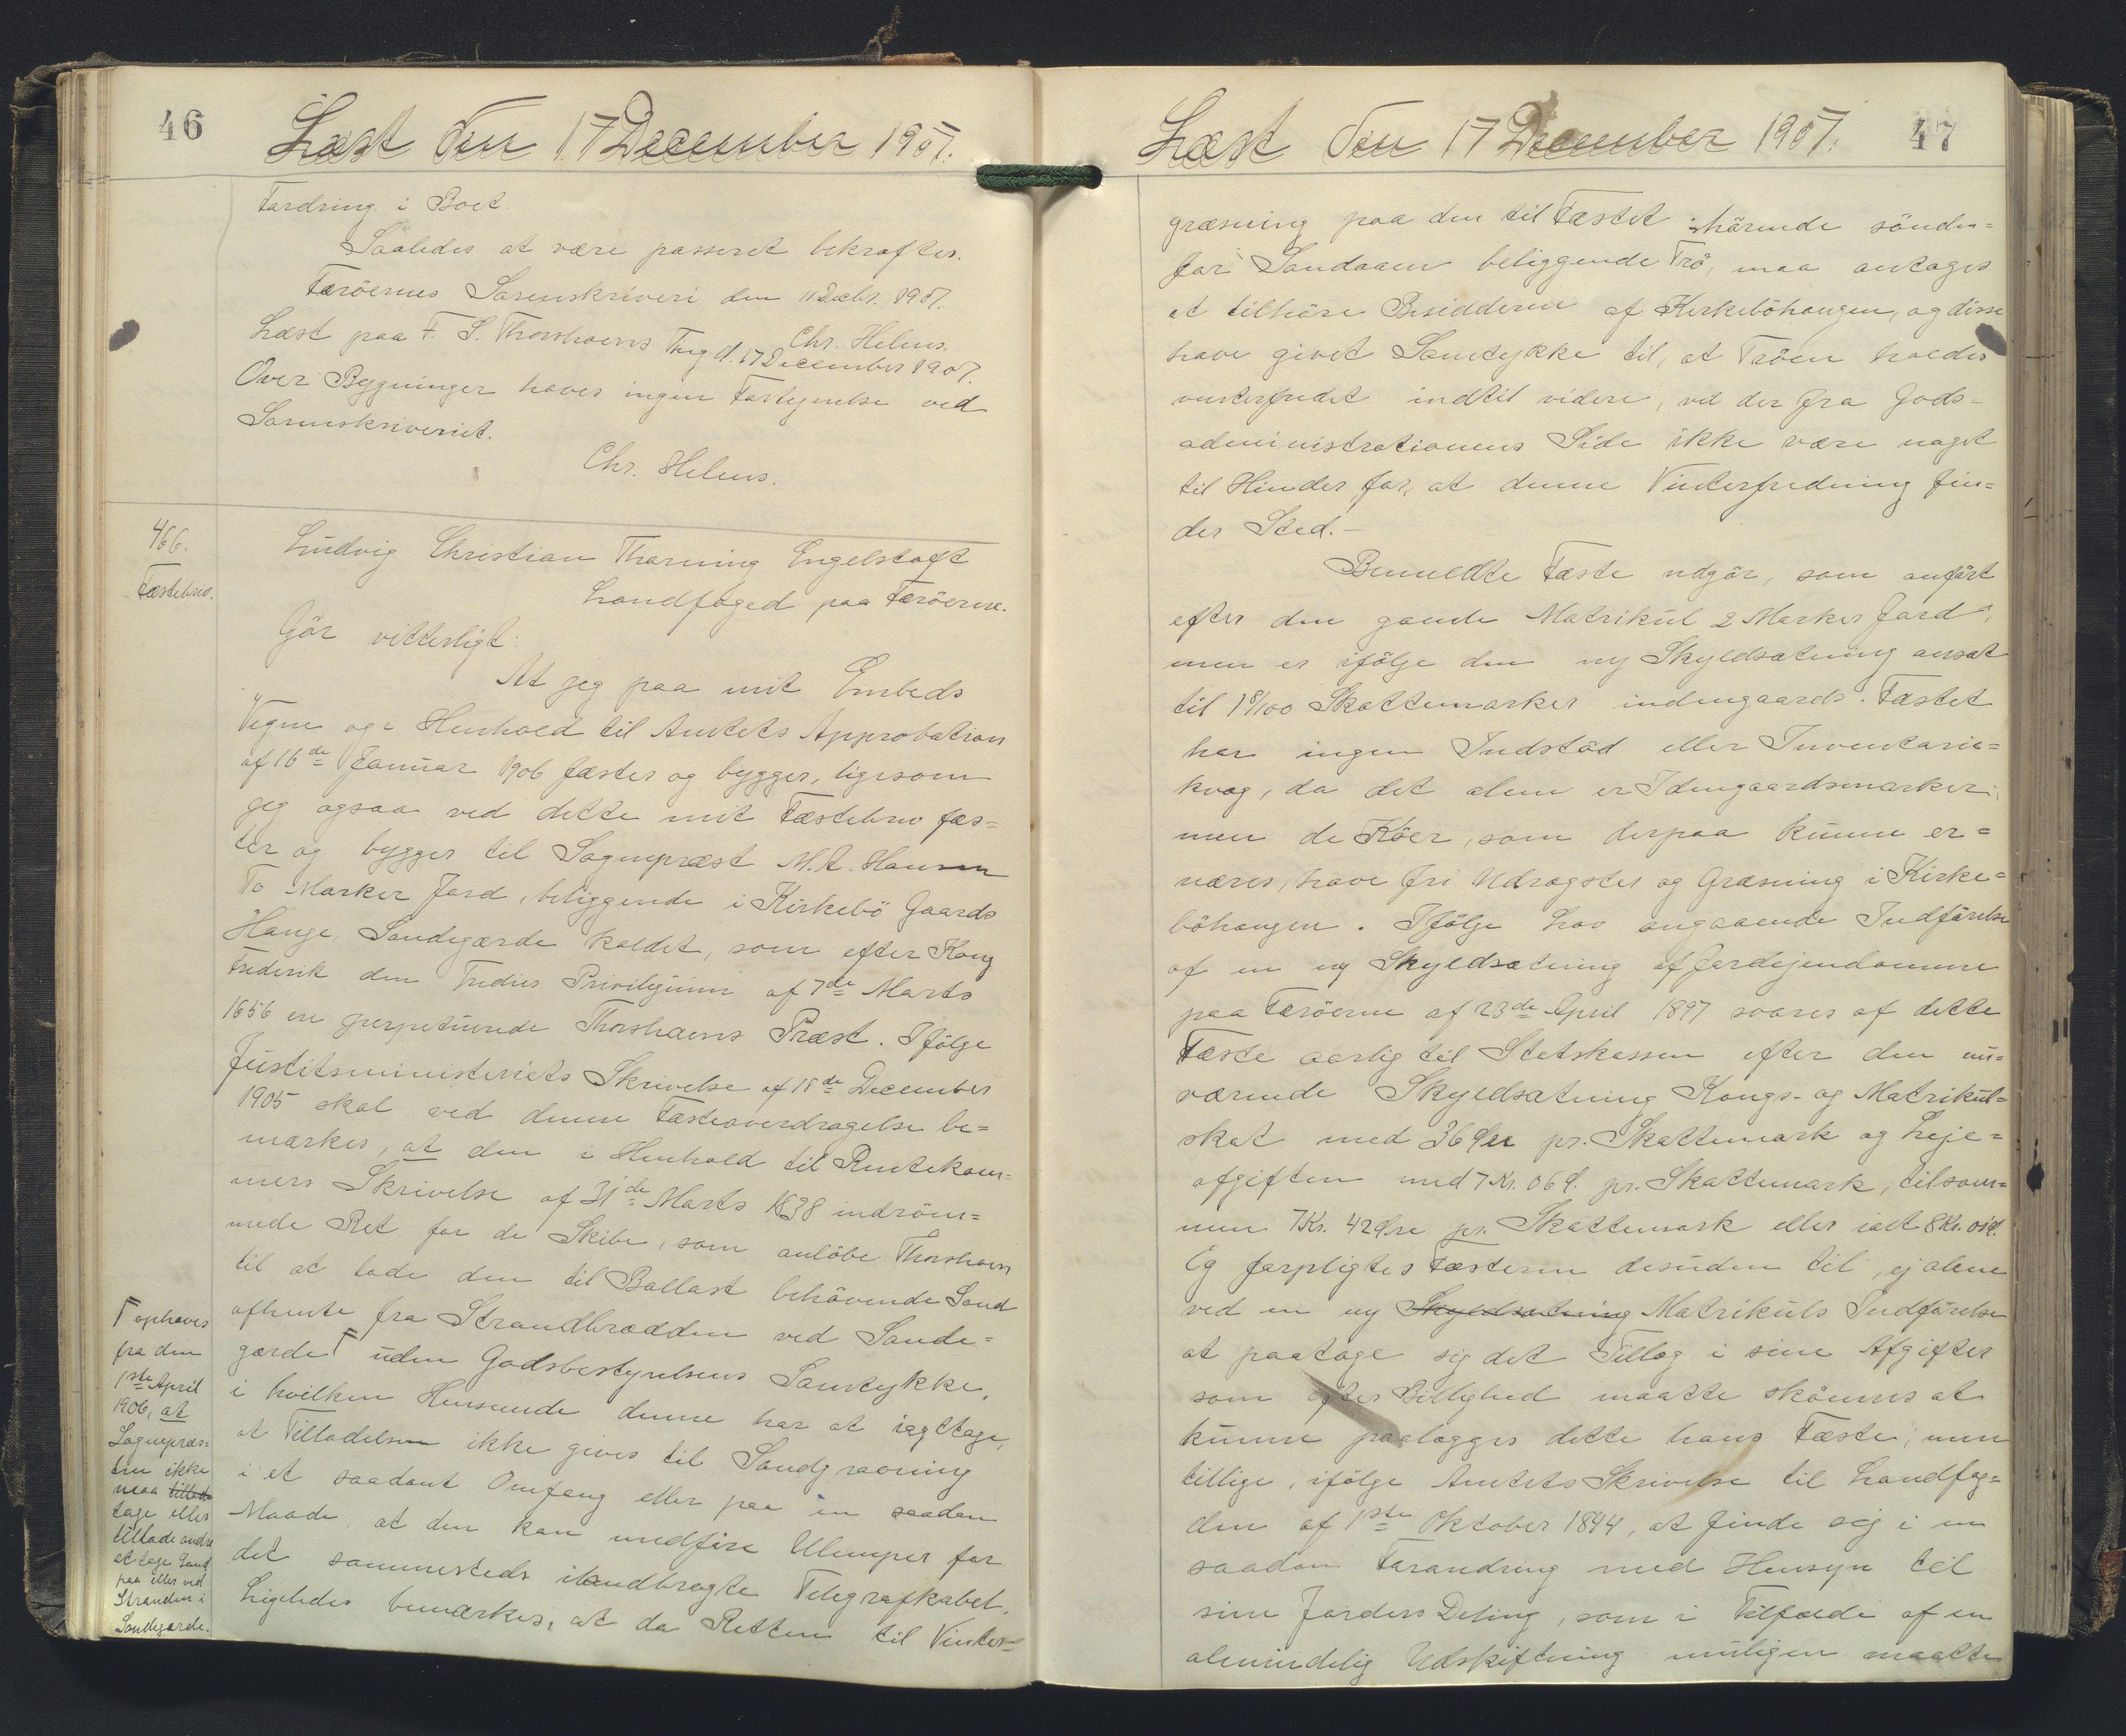 46
Læst den 17 December 1907.
Fordring i Boet.
Saaledes at være passeret bekræftes.
Færöernes Sorenskriveri den 11 Decbr. 1907.
Chr. Helms.
Læst paa F. S. Thorshavns Ting d. 17 December 1907.
Over Bygninger haves ingen Fortegnelse ved
Sorenskriveriet.
Chr. Helms.
466.
Fæstebrev.
Ludvig Christian Tharning Engelstoft
Landfoged paa Færöerne.
Gör vitterligt:
At jeg paa mit Embeds
Vegne og i Henhold til Amtets Approbation
af 16de Januar 1906 fæster og bygger, ligesom
jeg ogsaa ved dette mit Fæstebrev fæs=
ter og bygger til Sognepræst M. A. Hansen
To Marker Jord, beliggende i Kirkebö Gaards
Hauge Sandegærde kaldet, som efter Kong
Frederik den Tredies Privilegium af 7de Marts
1656 ere perpetuerede Thorshavns Præst. Ifölge
Justitsministeriets Skrivelse af 18de December
1905 skal ved denne Fæsteoverdragelse be=
mærkes, at den i Henhold til Rentekam=
mers Skrivelse af 31de Marts 1838 indröm=
mede Ret for de Skibe, som anlöbe Thorshavn
til at lade den til Ballast behövende Sand
afhente fra Strandbredden ved Sande=
gærde ┌ uden Godsbestyrelsens Samtykke,
i hvilken Henseende denne har at iagttage,
at Tilladelsen ikke gives til Sandgravning
i et saadant Omfang eller paa en saadan
Maade, at den kan medföre Ulemper for
det sammesteds ilandbragte Telegrafkabel.
Ligeledes bemærkes, at da Retten til Vinter=
┌ ophæves
fra den
1ste April
1906, at
Sognepræs=
ten ikke
maa tillade
tage eller
tillade andre
at tage Sand
paa eller ved
Stranden i
Sandegærde.
Læst den 17 December 1907.
47
græsning paa den til Fæstet hörende sönden=
for Sandaaen beliggende Trö, maa antages
at tilhöre Besidderne af Kirkeböhaugen, og disse
have givet Samtykke til, at Tröen holdes
vinterfredet indtil videre, vil der fra Gods=
administrationens Side ikke være noget
til Hinder for, at denne Vinterfredning fin=
der Sted.-
Bemeldte Fæste udgör, som anfört
efter den gamle Matrikul 2 Marker Jord,
men er ifölge den ny Skyldsætning ansat
til 1 8/100 Skattemarker indengaards. Fæstet
har ingen Indstöd eller Inventarie=
kvæg, da det alene er Idengaardsmarker;
men de Köer, som derpaa kunne er=
næres, have fri Udrægster og Græsning i Kirke=
böhaugen. Ifölge Lov angaaende Indförelse
af en ny Skyldsætning af Jordejendomme
paa Færöerne af 23de April 1897 svares af dette
Fæste aarlig til Statskassen efter den nu=
værende Skyldsætning Kongs- og Matrikul=
skat med 36 Øre pr. Skattemark og Leje=
afgiften med 7 Kr. 06 Ø. pr. Skattemark, tilsam=
men 7 Kr. 42 Øre pr. Skattemark eller ialt 8 Kr. 01 Ø.
Og forpligtes Fæsteren desuden til, ej alene
ved en ny Skyldsætning Matrikuls Indförelse
at paatage sig det Tillæg i sine Afgifter
som efter Billighed maatte skönnes at
kunne paalægges dette hans Fæste, men
tillige, ifölge Amtets Skrivelse til Landfog=
den af 1ste Oktober 1844, at finde sig i en
saadan Forandring med Hensyn til
sine Jorders Deling, som i Tilfælde af en
almindelig Udskiftning muligen maatte